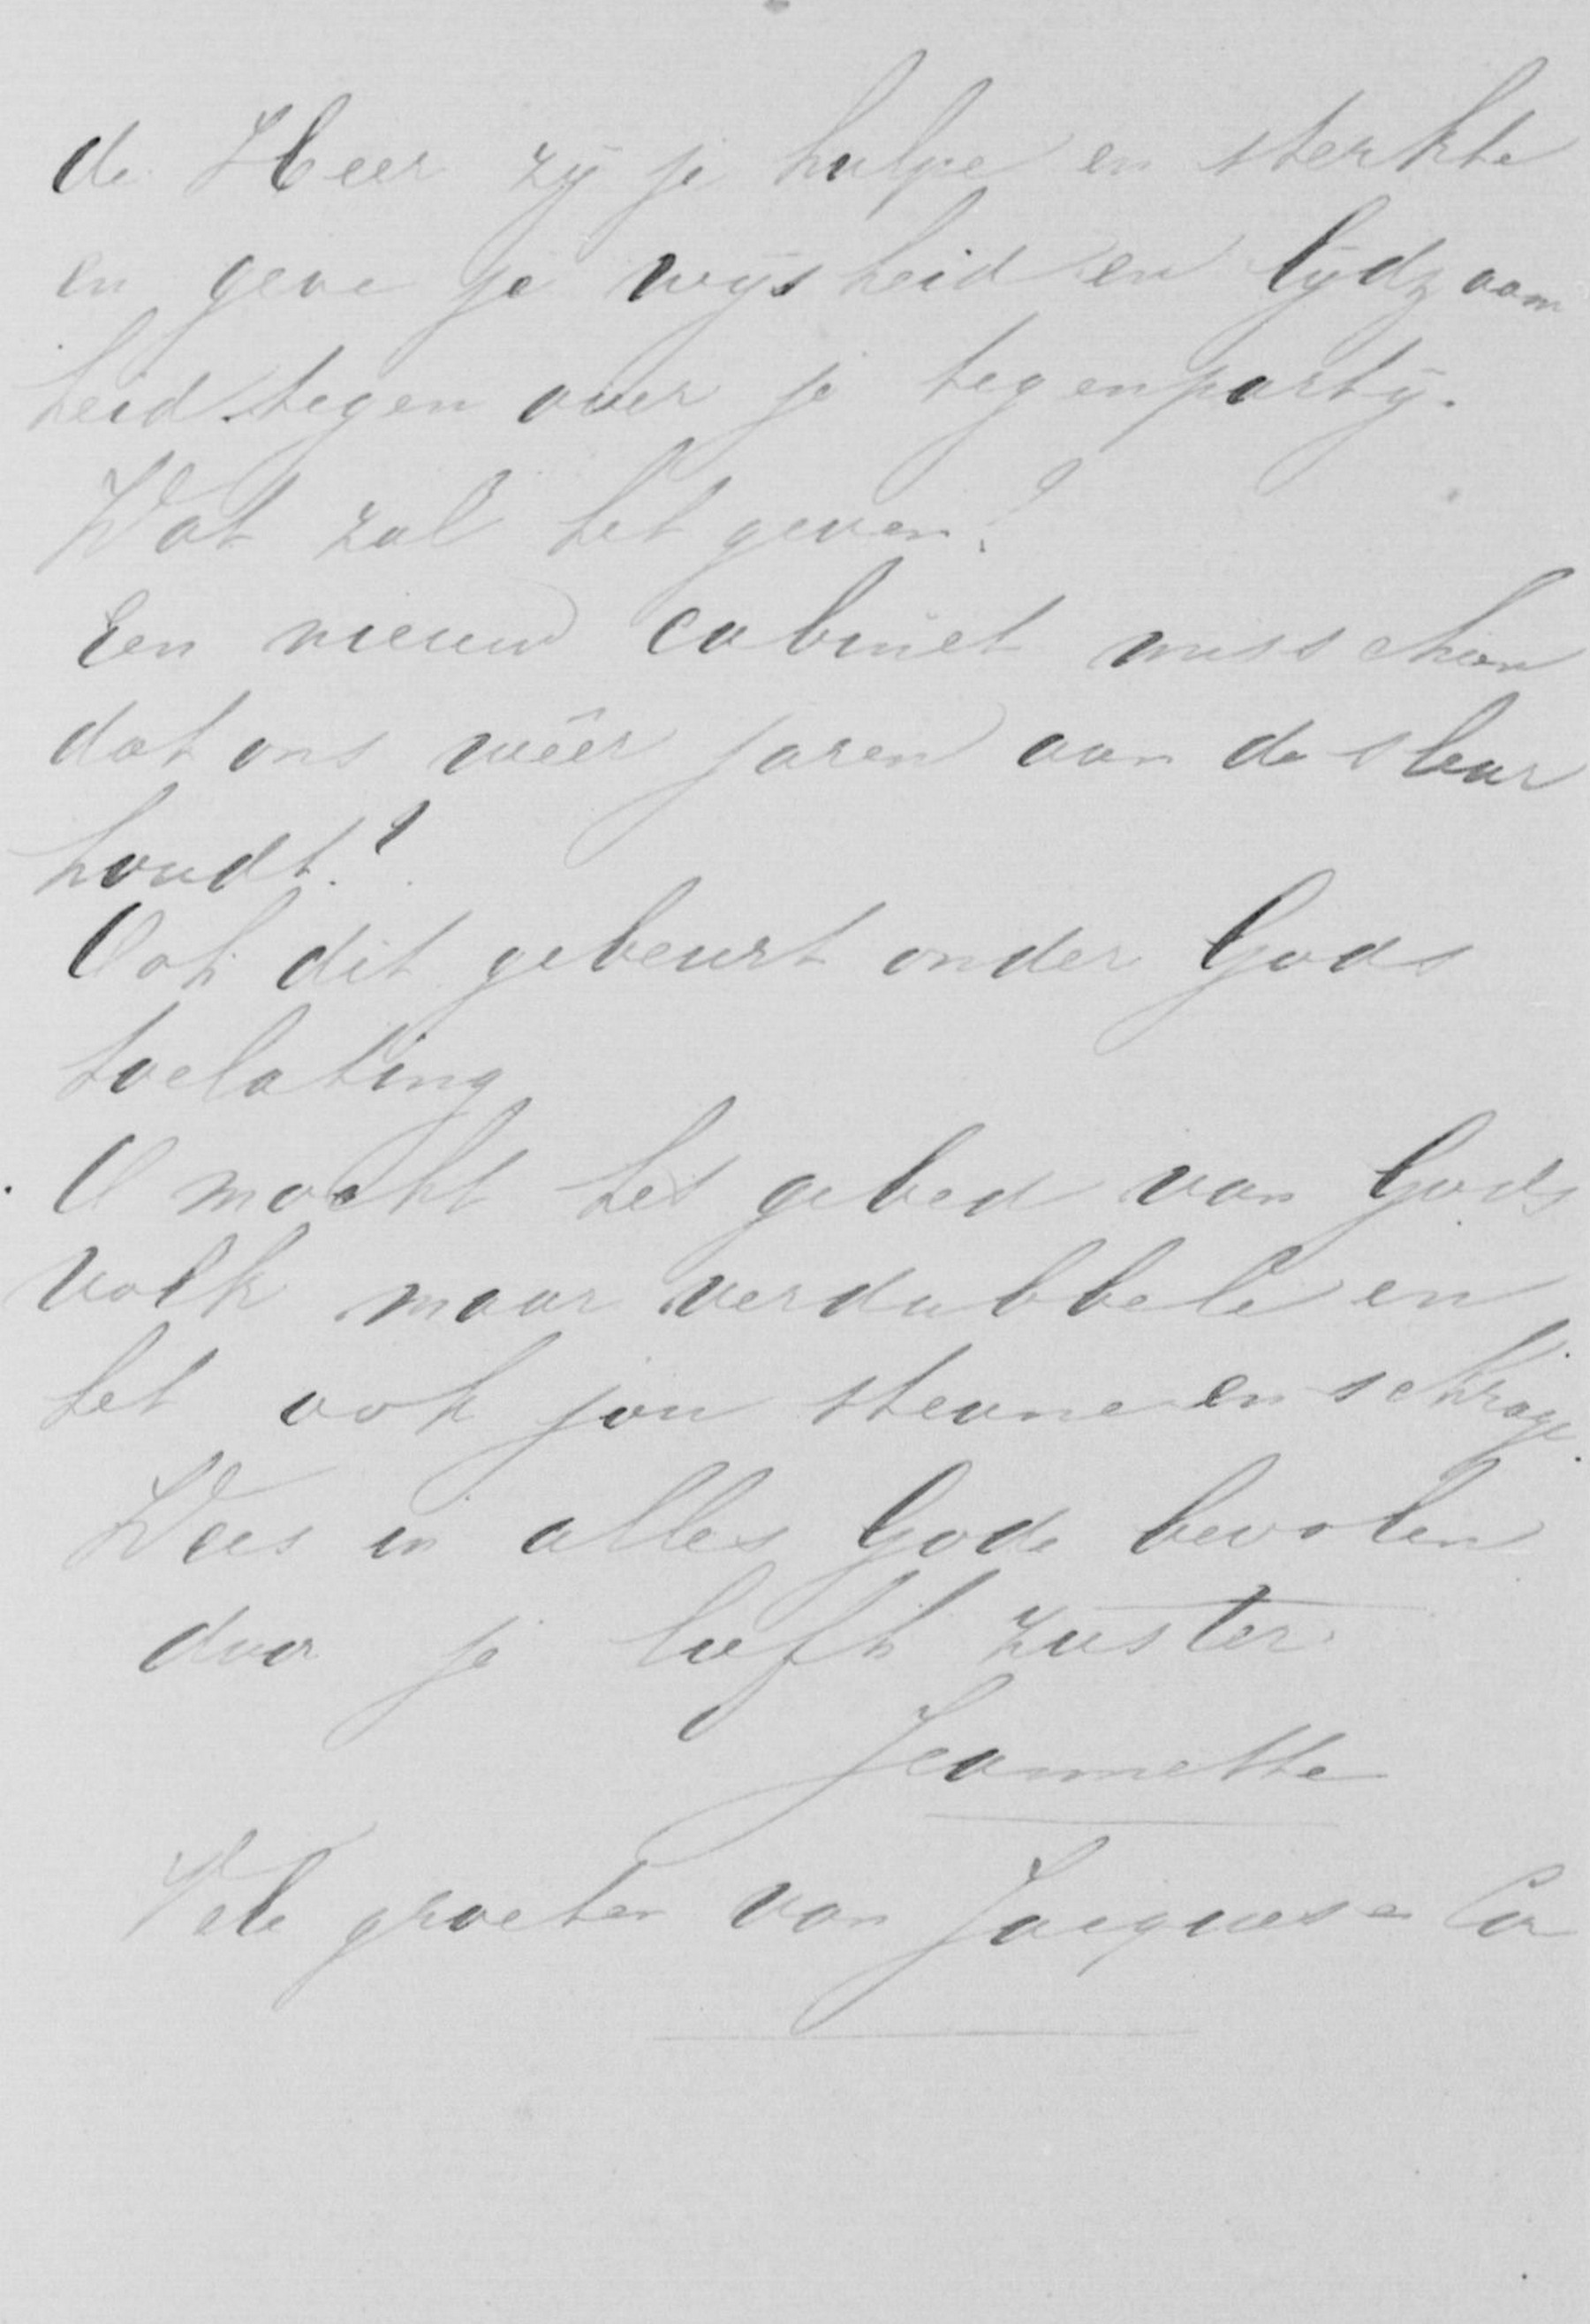 de Heer zij je hulpe en sterkte
en geve je wijsheid en lijdzaam
heid tegen over je tegenpartij.
Wat zal het geven?
Een nieuw cabinet misschien
dat ons wêer jaren aan de sleur
houdt?
Ook dit gebeurt onder Gods
toelating
O mocht het gebed van Gods
volk maar verdubbele en
het ook jou steune en schrage.
Wees in alles Gode bevolen
door je liefh zuster
Jeannette
Vele groeten van Jacques en Co